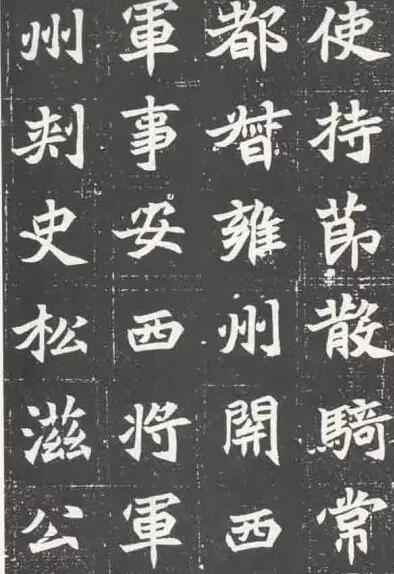 使持莭散騎常
都督雍州開西
軍事安西将軍
州刾史松滋公